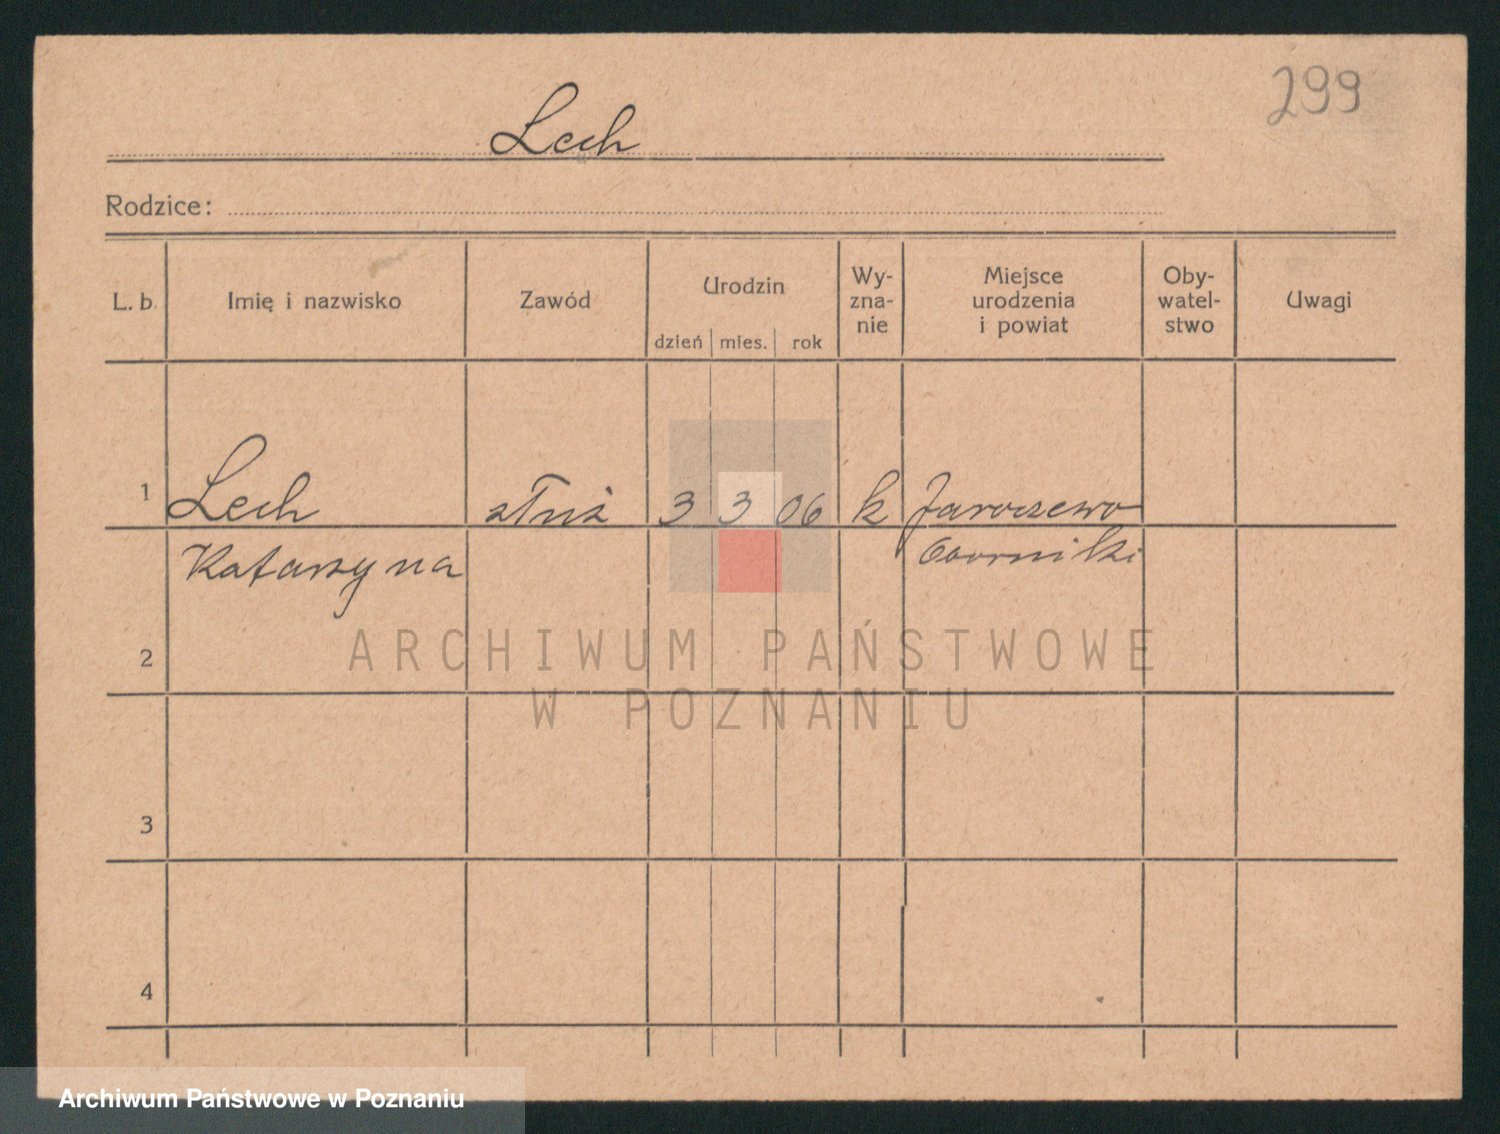 299
Lech
Rodzice:
L. b. Imię i nazwisko Zawód Urodzin dzień mies. rok Wy-zna-nie Miejsce urodzenia i powiat Oby-watel-stwo Uwagi
1 Lech 3 3 06 k Jaroszewo
Katarzyna
2
ARCHIWUM PAŃSTWOWE
W POZNANIU
3
4
Archiwum Państwowe w Poznaniu